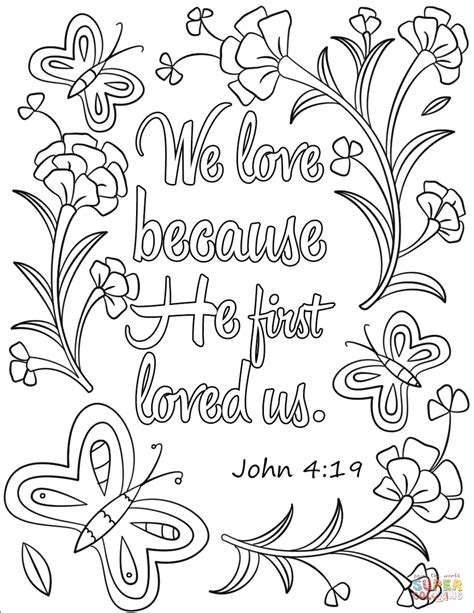 We love
because
He first
loved us.
John 4:19
SUPER
COLORING